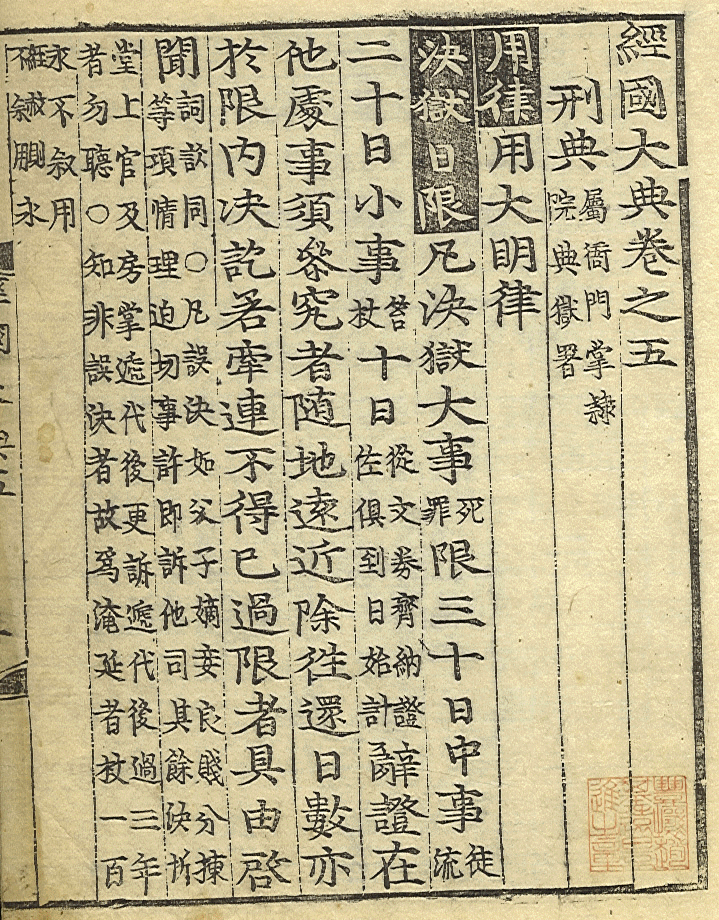 經國大典卷之五
刑典 屬衙門掌隸
院典獄署
用律 用大明律
決獄日限 凡決獄大事 死
罪 限三十日中事 徒
流
二十日小事 笞
杖 十日 從文券齊納證
佐俱到日始計 辭證在
他處事須叅究者随地遠近除徃還日數亦
於限内决訖若牽連不得已過限者具由啓
聞 詞訟同○凡誤決如父子嫡妾良賤分揀
等項情理迫切事許即訴他司其餘決折
堂上官及房掌遞代後更訴遞代後過三年
者勿聽○知非誤決者故爲淹延者杖一百
永不叙用